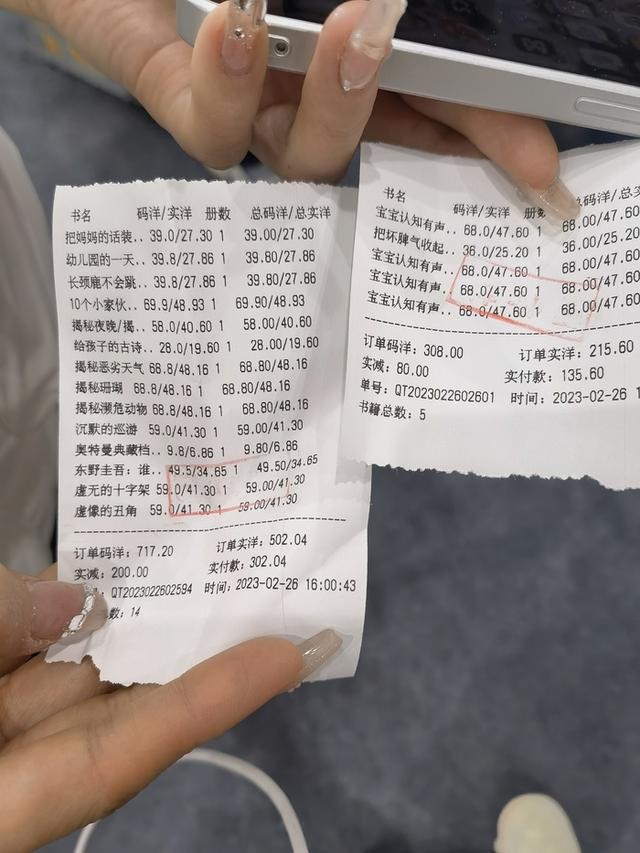 书名 码洋/实洋 册数 总码洋/总实洋
把妈妈的话装.. 39.0/27.30 1 39.00/27.30
幼儿园的一天.. 39.8/27.86 1 39.80/27.86
长颈鹿不会跳.. 39.8/27.86 1 39.80/27.86
10个小家伙.. 69.9/48.93 1 69.90/48.93
揭秘夜晚/揭.. 58.0/40.60 1 58.00/40.60
给孩子的古诗.. 28.0/19.60 1 28.00/19.60
揭秘恶劣天气 68.8/48.16 1 68.80/48.16
揭秘珊瑚 68.8/48.16 1 68.80/48.16
揭秘濒危动物 68.8/48.16 1 68.80/48.16
沉默的巡游 59.0/41.30 1 59.00/41.30
奥特曼典藏档.. 9.8/6.86 1 9.80/6.86
东野圭吾：谁.. 49.5/34.65 1 49.50/34.65
虚无的十字架 59.0/41.30 1 59.00/41.30
虚像的丑角 59.0/41.30 1 59.00/41.30
订单码洋：717.20 订单实洋：502.04
实减：200.00 实付款：302.04
QT2023022602594 时间：2023-02-26 16:00:43
数：14
书名 码洋/实洋 册数 总码洋/总实
宝宝认知有声.. 68.0/47.60 1 68.00/47.60
把坏脾气收起.. 36.0/25.20 1 36.00/25.20
宝宝认知有声.. 68.0/47.60 1 68.00/47.60
宝宝认知有声.. 68.0/47.60 1 68.00/47.60
宝宝认知有声.. 68.0/47.60 1 68.00/47.60
订单码洋：308.00 订单实洋：215.60
实减：80.00 实付款：135.60
单号：QT2023022602601 时间：2023-02-26 1
书籍总数：5